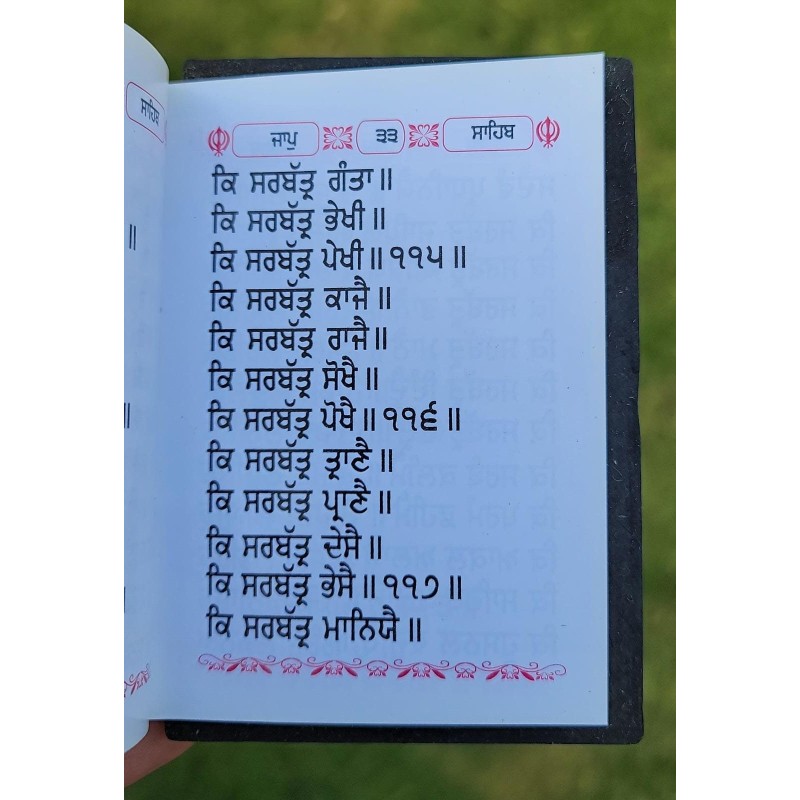 ਸਾਹਿਬ
॥
॥
ਜਾਪੁ ੩੩ ਸਾਹਿਬ
ਕਿ ਸਰਬੱਤ੍ਰ ਗੰਤਾ॥
ਕਿ ਸਰਬੱਤ੍ਰ ਭੇਖੀ॥
ਕਿ ਸਰਬੱਤ੍ਰ ਪੇਖੀ॥੧੧੫॥
ਕਿ ਸਰਬੱਤ੍ਰ ਕਾਜੈ॥
ਕਿ ਸਰਬੱਤ੍ਰ ਰਾਜੈ॥
ਕਿ ਸਰਬੱਤ੍ਰ ਸੋਖੈ॥
ਕਿ ਸਰਬੱਤ੍ਰ ਪੋਖੈ॥੧੧੬॥
ਕਿ ਸਰਬੱਤ੍ਰ ਤ੍ਰਾਣੈ॥
ਕਿ ਸਰਬੱਤ੍ਰ ਪ੍ਰਾਣੈ॥
ਕਿ ਸਰਬੱਤ੍ਰ ਦੇਸੈ॥
ਕਿ ਸਰਬੱਤ੍ਰ ਭੇਸੈ॥੧੧੭॥
ਕਿ ਸਰਬੱਤ੍ਰ ਮਾਨਿਯੈ॥